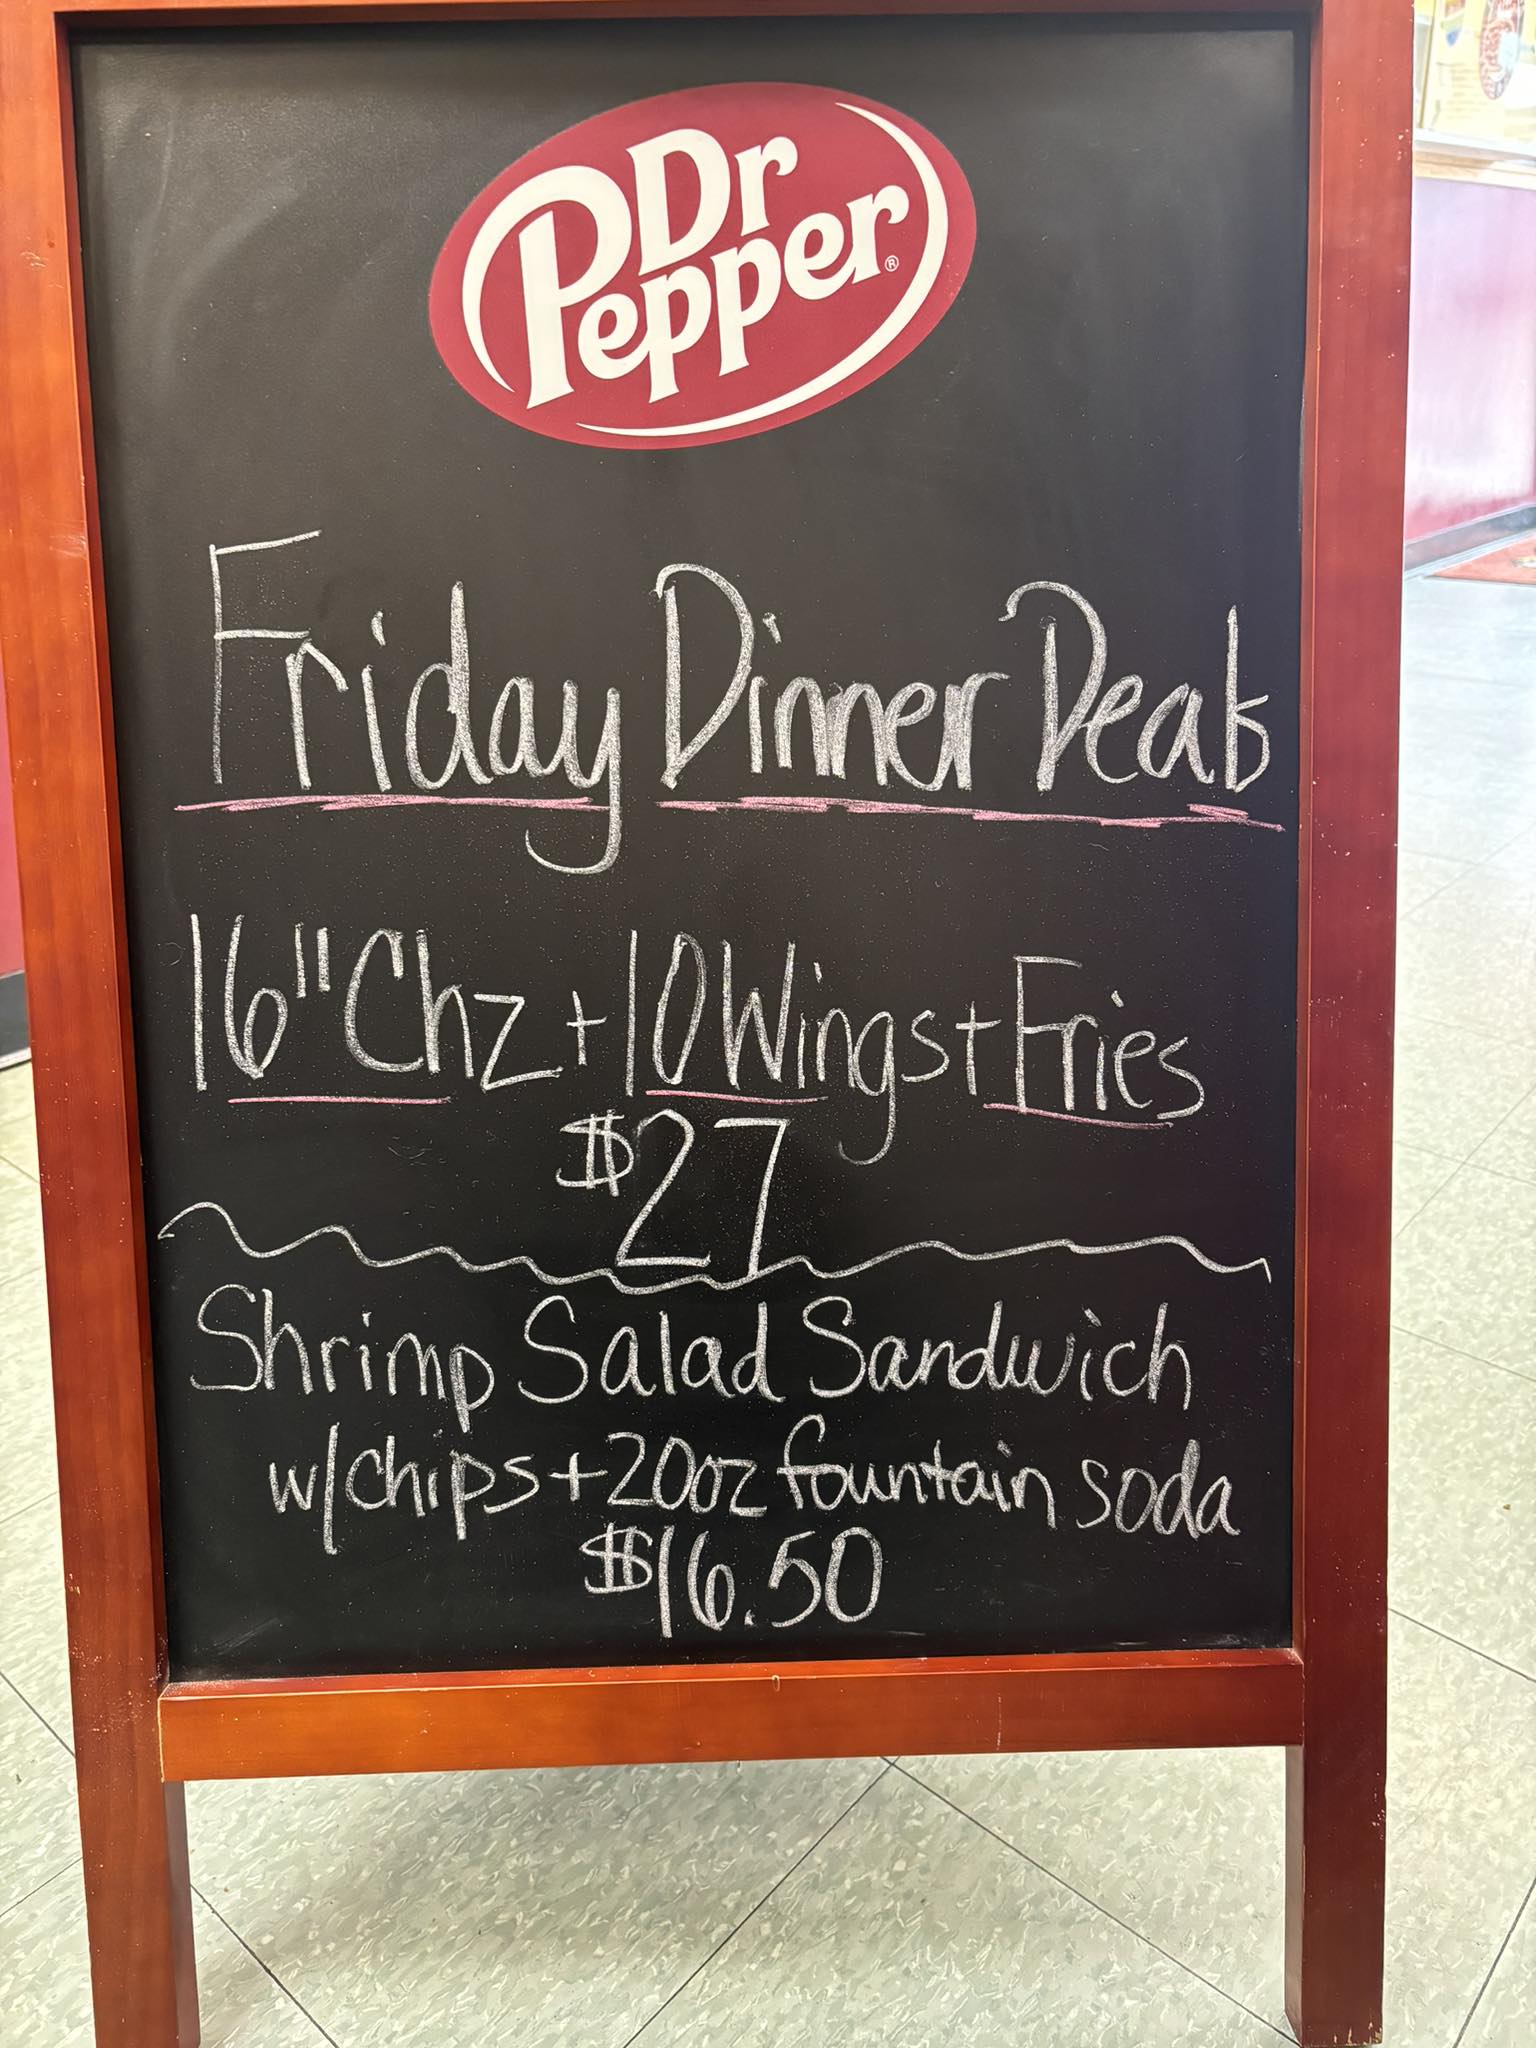 Dr
Pepper®
Friday Dinner Deals
16" Chz + 10 Wings + Fries
$27
Shrimp Salad Sandwich
w/chips + 20oz fountain soda
$16.50